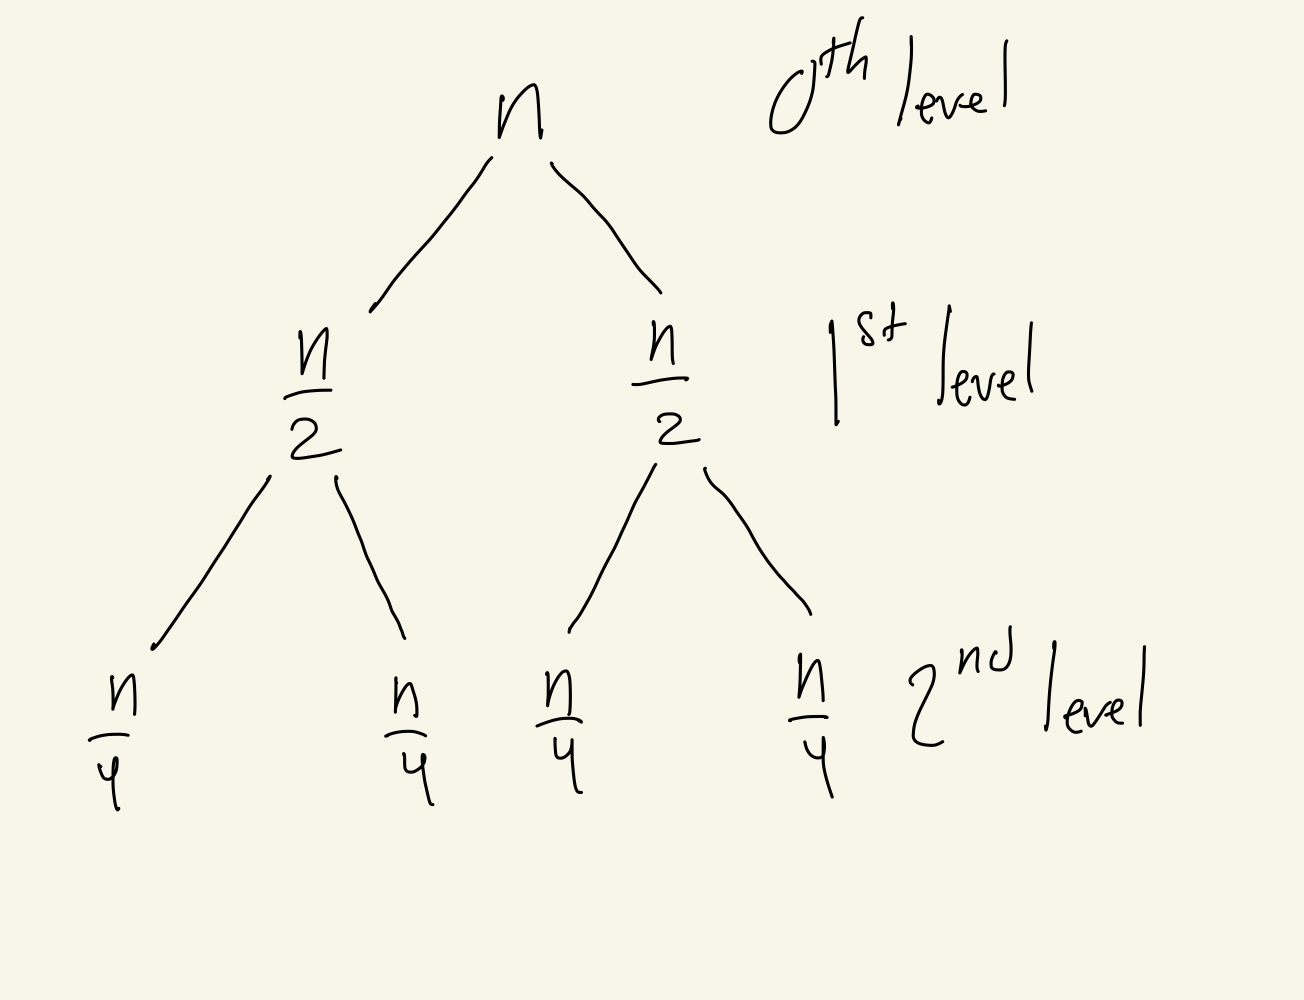 n 0th level
n/2 n/2 1st level
n/4 n/4 n/4 n/4 2nd level